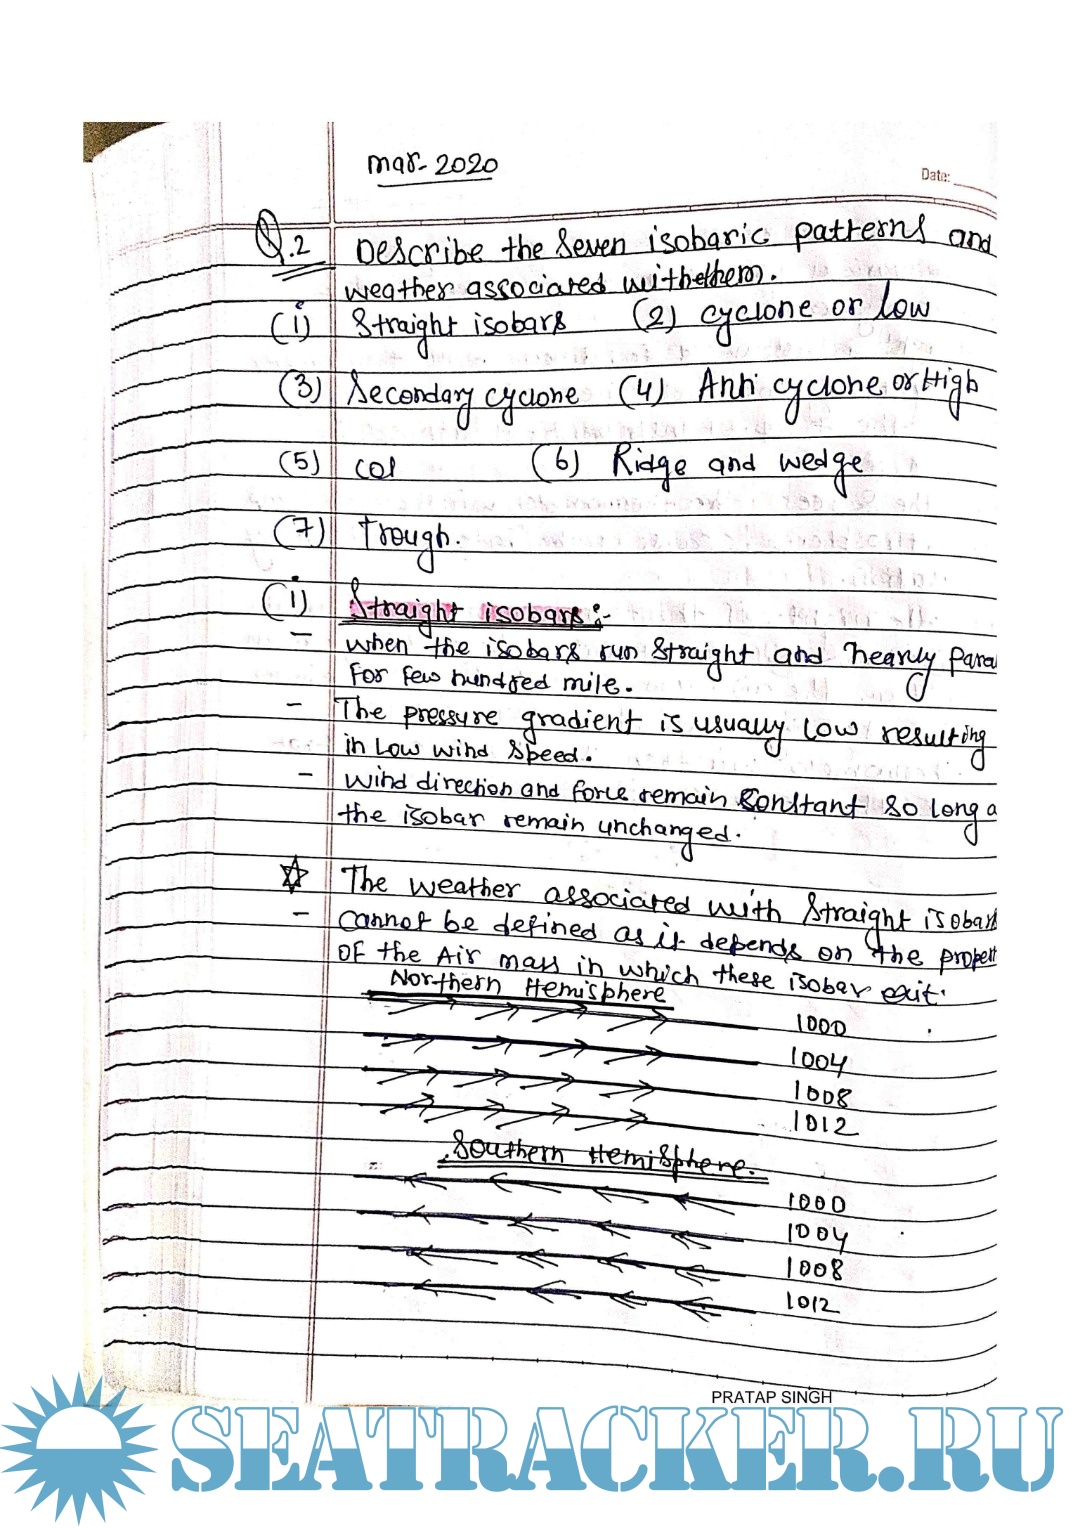 mar-2020
Date:
Q.2 Describe the seven isobaric patterns and
weather associated withethem.
(1) Straight isobars (2) cyclone or low
(3) Secondary cyclone (4) Anti cyclone or High
(5) col (6) Ridge and wedge
(7) Trough.
(1) Straight isobars:-
- when the isobars run straight and nearly para
for few hundred mile.
- The pressure gradient is usually low resulting
in low wind speed.
- Wind direction and force remain constant so long a
the isobar remain unchanged.
☆ The weather associated with straight isobars
- cannot be defined as it depends on the propert
OF the Air mass in which these isobar exit.
Northern Hemisphere
1000
1004
1008
1012
Southern Hemisphere.
1000
1004
1008
1012
PRATAP SINGH
SEATRACKER.RU